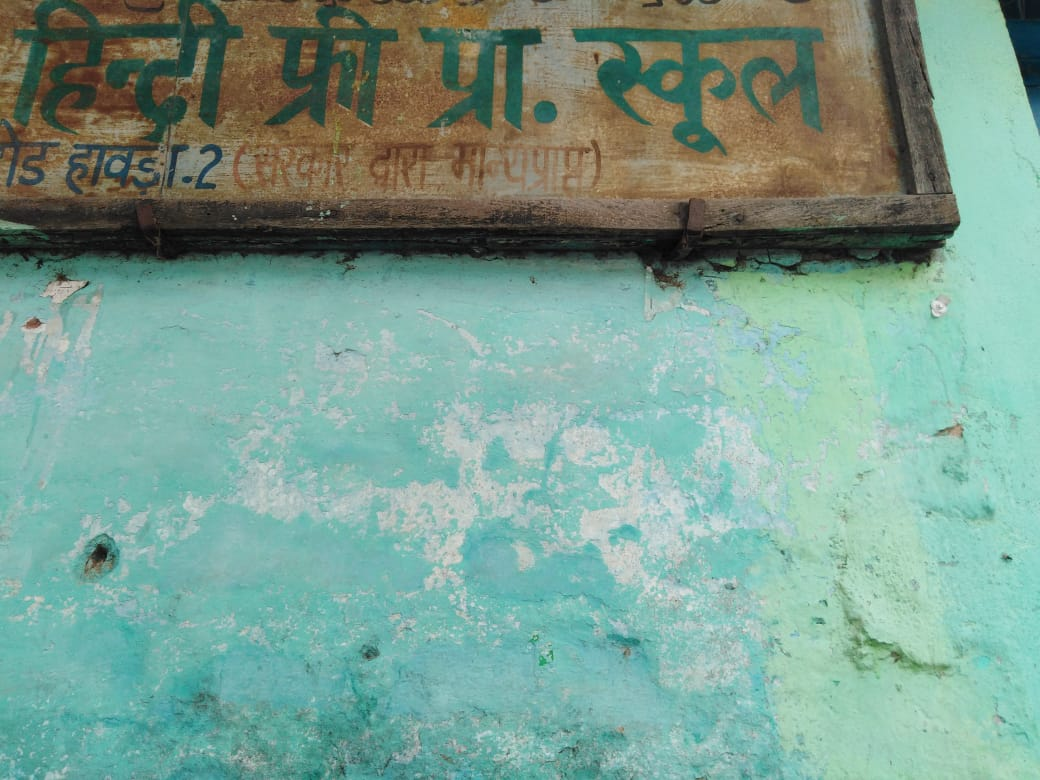 हिन्दी फ्री प्रा. स्कूल
रोड हावड़ा.2 (सरकार द्वारा मान्यप्राप्त)